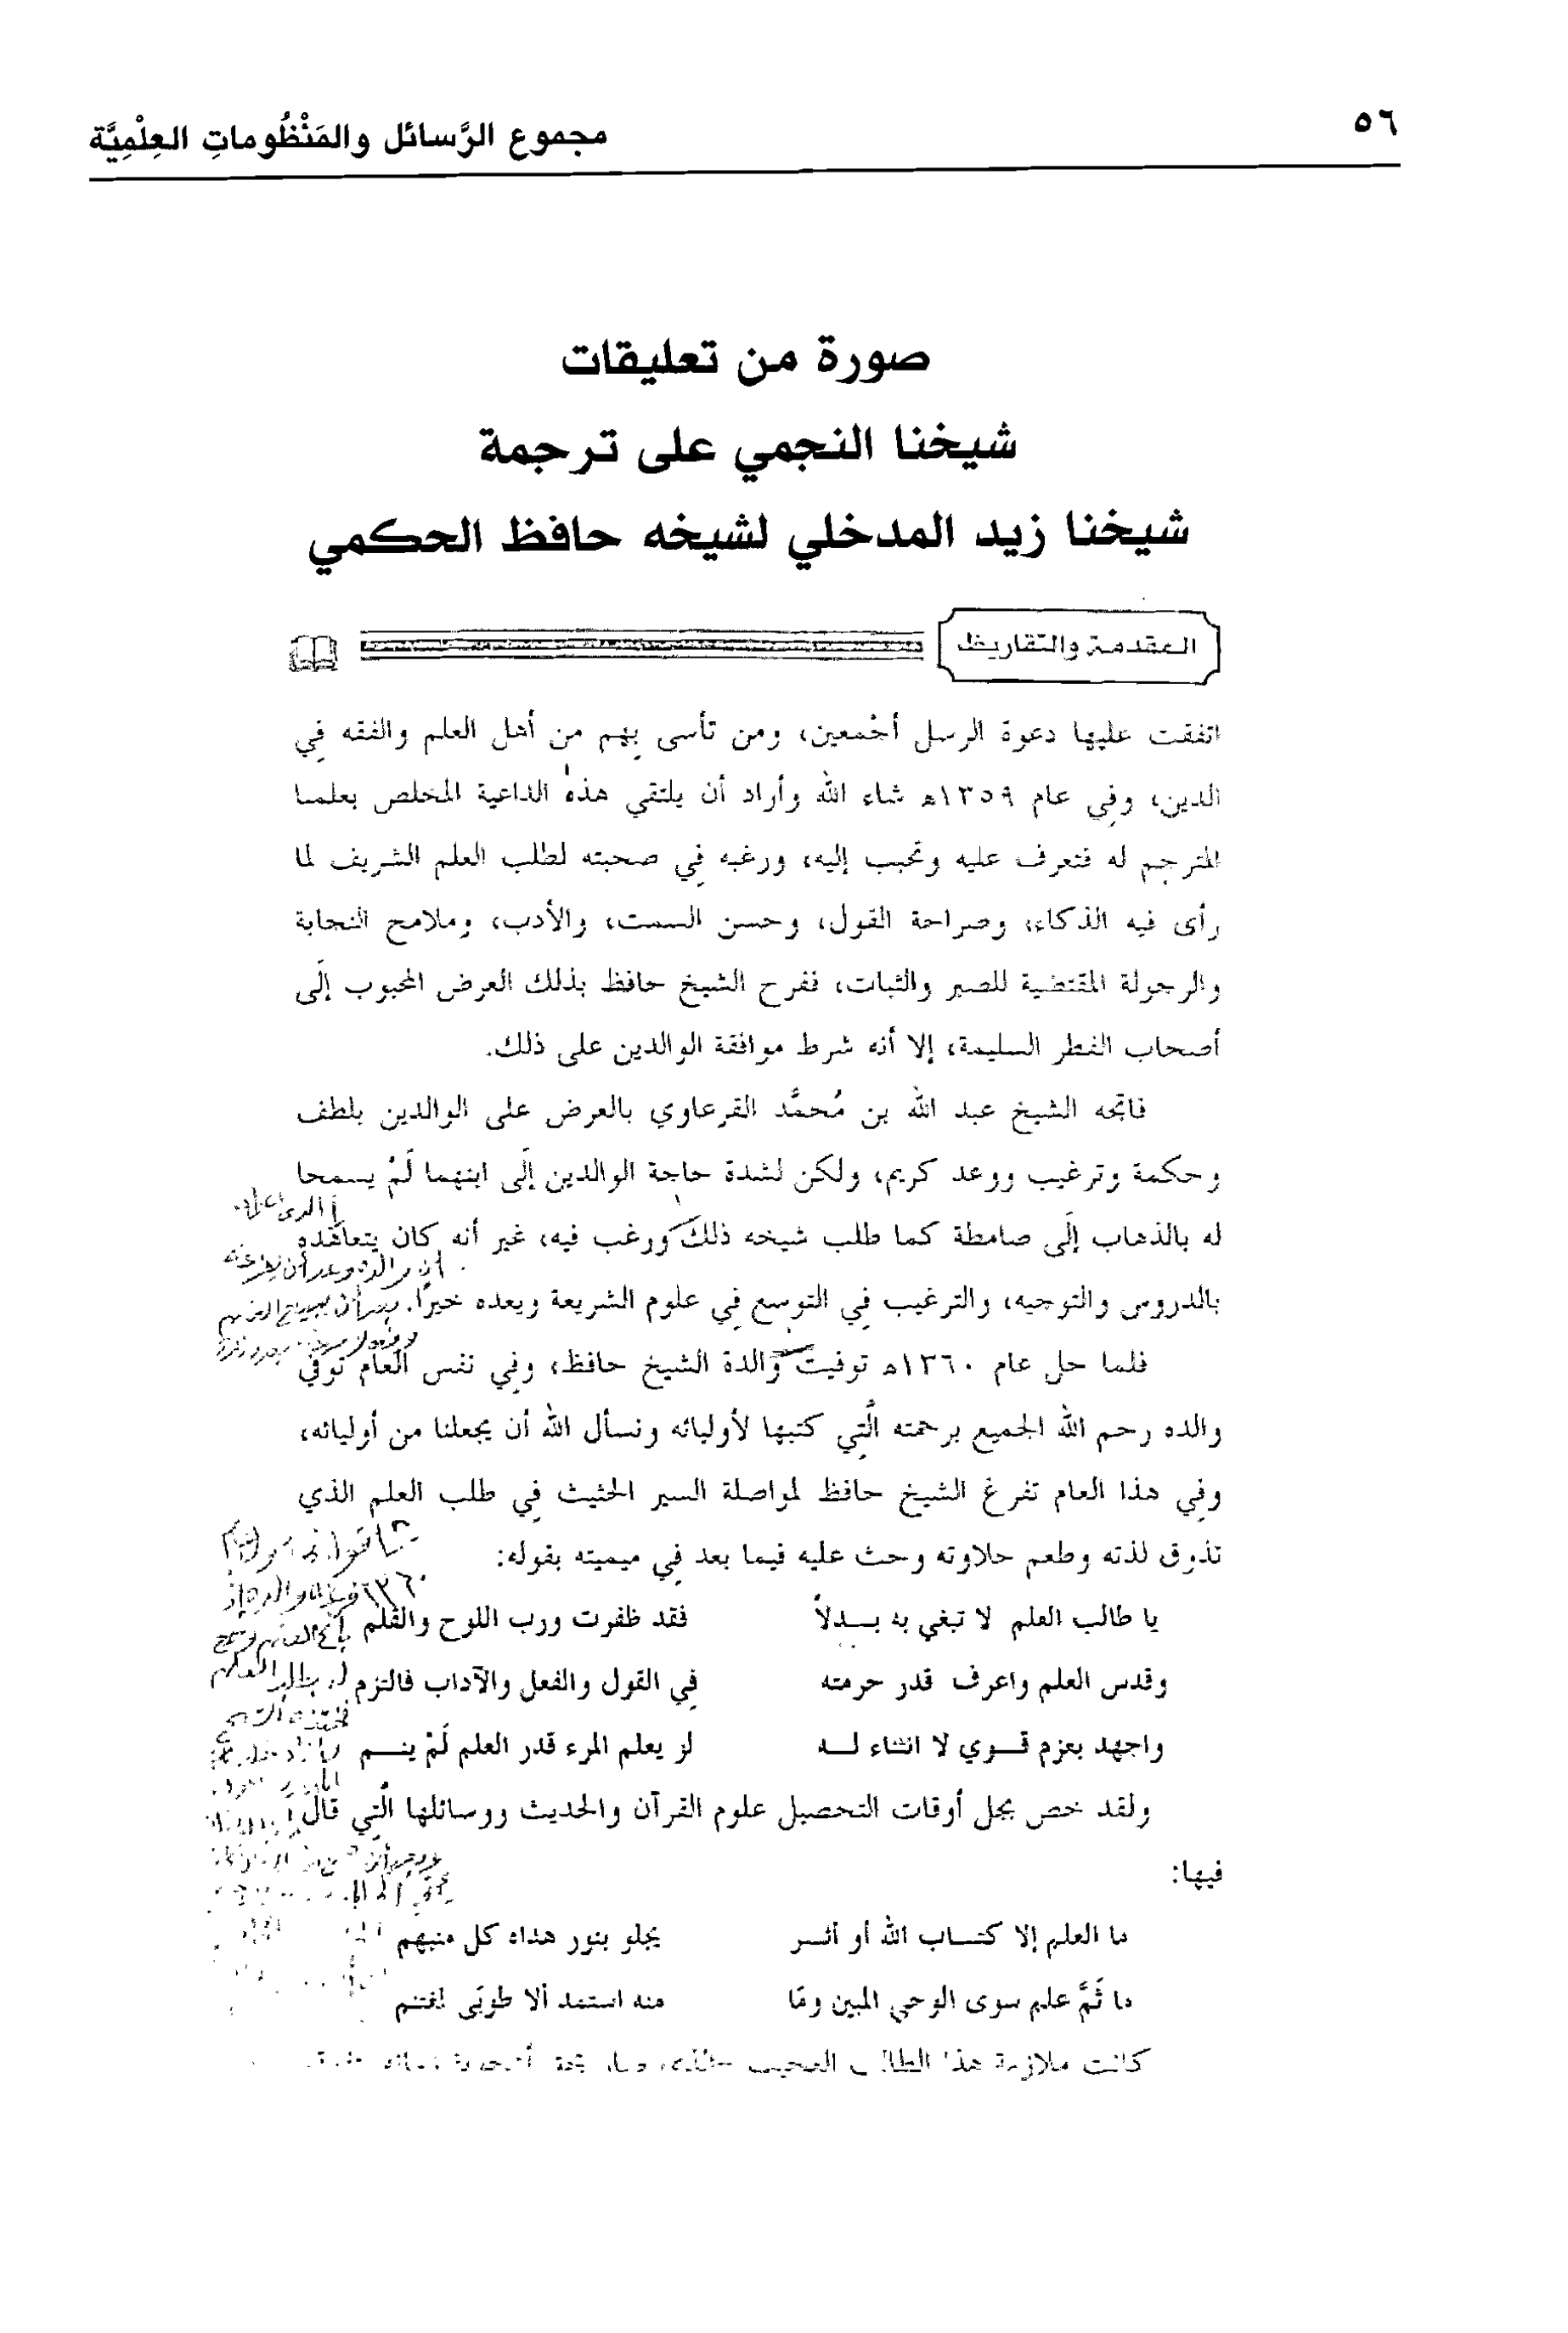 ٥٦
مجموع الرَّسائل والمَنْظُوماتِ العِلْمِيَّة
صورة من تعليقات
شيخنا النجمي على ترجمة
شيخنا زيد المدخلي لشيخه حافظ الحكمي
المقدمة والتقاريظ
اتفقت عليها دعوة الرسل أجْمعين، ومن تأسى بِهم من أهل العلم والفقه فِي
الدين، وفِي عام ١٣٥٩هـ شاء الله وأراد أن يلتقي هذا الداعية المخلص بعلمنا
المترجم له فتعرف عليه وتحبب إليه، ورغبه فِي صحبته لطلب العلم الشريف لما
رأى فيه الذكاء، وصراحة القول، وحسن السمت، والأدب، وملامح النجابة
والرجولة المقتضية للصبر والثبات، ففرح الشيخ حافظ بذلك العرض المحبوب إلَى
أصحاب الفطر السليمة، إلا أنه شرط موافقة الوالدين على ذلك.
فاتجه الشيخ عبد الله بن مُحمَّد القرعاوي بالعرض على الوالدين بلطف
وحكمة وترغيب ووعد كريم، ولكن لشدة حاجة الوالدين إلَى ابنهما لَمْ يسمحا
له بالذهاب إلَى صامطة كما طلب شيخه ذلك ورغب فيه، غير أنه كان يتعاهده
بالدروس والتوجيه، والترغيب فِي التوسع فِي علوم الشريعة ويعده خيرًا.
فلما حل عام ١٣٦٠هـ توفيت والدة الشيخ حافظ، وفِي نفس العام توفي
والده رحم الله الجميع برحمته الَّتِي كتبها لأوليائه ونسأل الله أن يجعلنا من أوليائه،
وفِي هذا العام تفرغ الشيخ حافظ لمواصلة السير الحثيث فِي طلب العلم الذي
تذوق لذته وطعم حلاوته وحث عليه فيما بعد فِي ميميته بقوله:
يا طالب العلم لا تبغي به بــدلاً فقد ظفرت ورب اللوح والقلم
وقدس العلم واعرف قدر حرمته فِي القول والفعل والآداب فالتزم
واجهد بعزم قــوي لا انثناء لــه لو يعلم المرء قدر العلم لَمْ ينــم
ولقد خص بجل أوقات التحصيل علوم القرآن والحديث ووسائلها الَّتِي قال
فيها:
ما العلم إلا كتــاب الله أو أثــر يجلو بنور هداه كل منبهم
ما ثَمَّ علم سوى الوحي المبين وما منه استمد ألا طوبَى لمغتنم
كانت ملازمة هذا الطالب